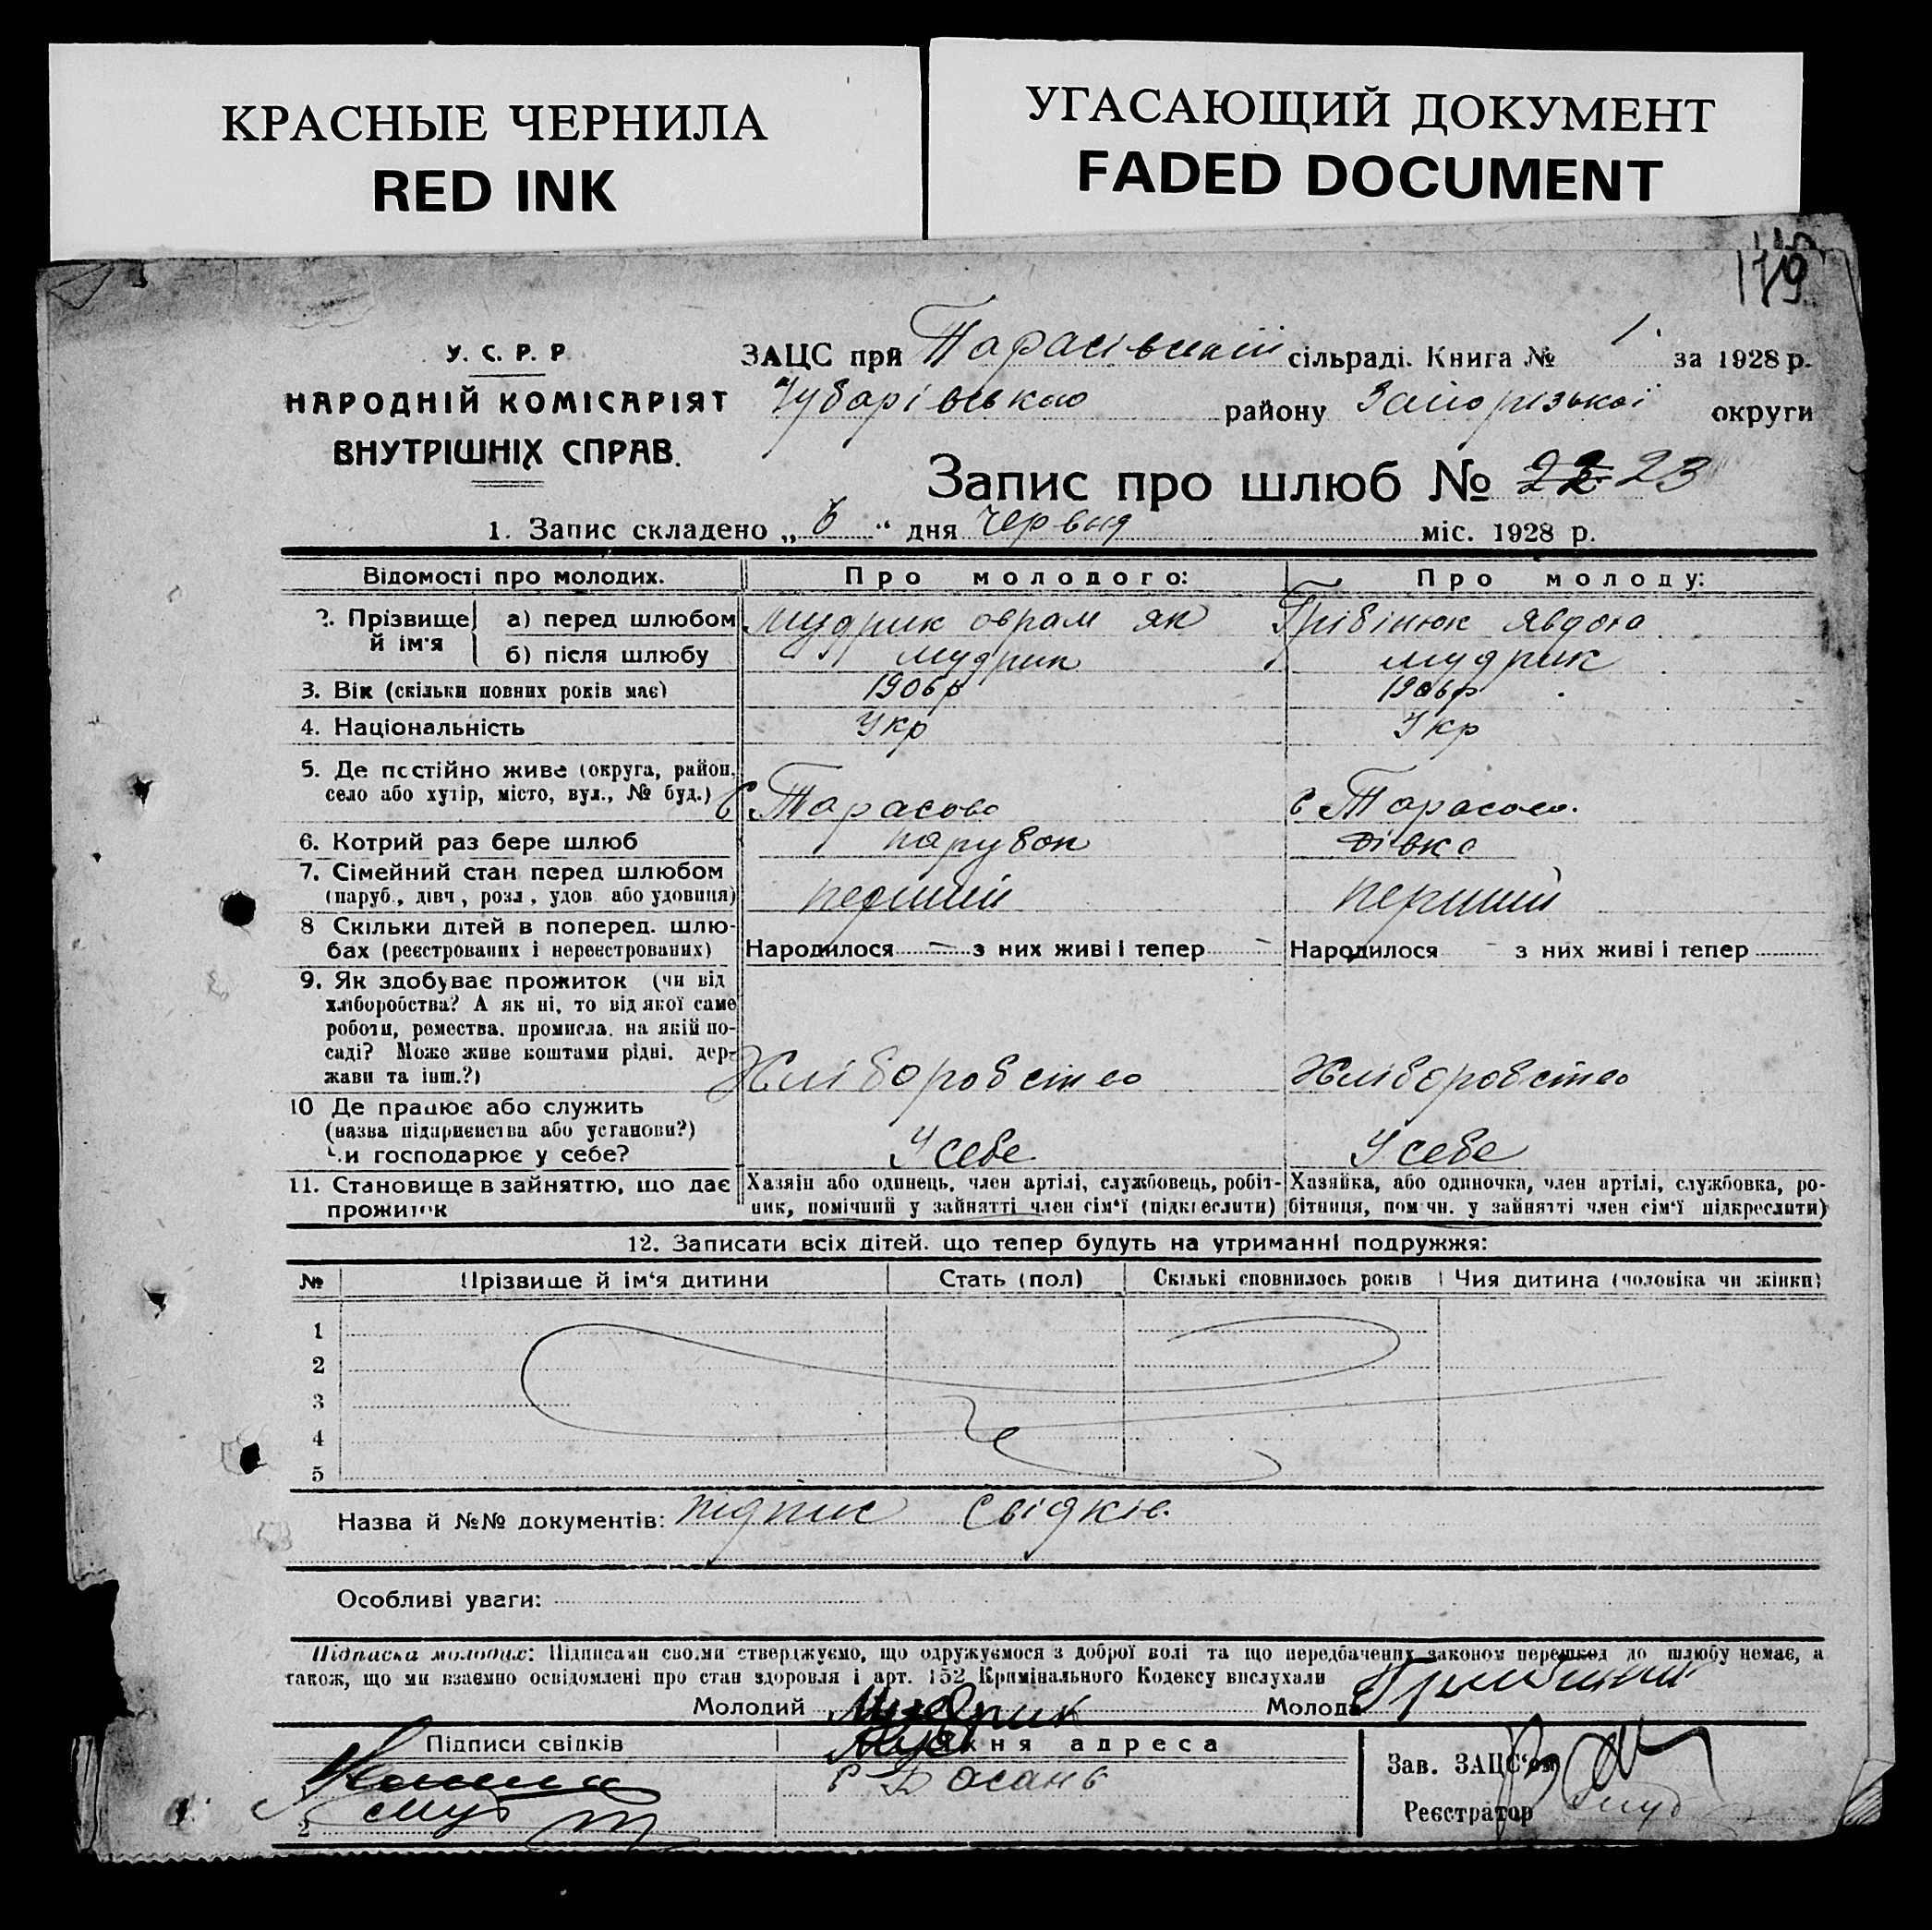 КРАСНЫЕ ЧЕРНИЛА
RED INK
УГАСАЮЩИЙ ДОКУМЕНТ
FADED DOCUMENT
179
У. С. Р. Р
НАРОДНІЙ КОМІСАРІЯТ
ВНУТРІШНІХ СПРАВ.
ЗАЦС при Тарасівський сільраді. Книга № 1. за 1928 р.
Чубарівською району Запорізької округи
Запис про шлюб № 22 23
1. Запис складено „ 6 “ дня червня міс. 1928 р.
Відомості про молодих. Про молодого: Про молоду:
2. Прізвище й ім'я а) перед шлюбом Мудрик оврам як Грівінюк Явдоха
б) після шлюбу Мудрик Мудрик
3. Вік (скільки повних років має) 1906р 1906р
4. Національність Укр Укр
5. Де постійно живе (округа, район,
село або хутір, місто, вул., № буд.) С Тарасово С Тарасово.
6. Котрий раз бере шлюб парубок дівка
7. Сімейний стан перед шлюбом
(паруб., дівч, розл, удов або удовиця) перший перший
8 Скільки дітей в поперед. шлю-
бах (реєстрованих і нереєстрованих) Народилося — з них живі і тепер – Народилося – з них живі і тепер
9. Як здобуває прожиток (чи від
хліборобства? А як ні, то від якої саме
роботи, ремества, промисла, на якій по-
саді? Може живе коштами рідні, дер-
жави та інш.?) Хліборобство Хліборобство
10 Де працює або служить
(назва підприємства або установи?)
Чи господарює у себе? У себе У себе
11. Становище в зайняттю, що дає
прожиток
Хазяїн або одинець, член артілі, службовець, робіт-
ник, помічний у зайнятті член сім'ї (підкреслити)
Хазяйка, або одиночка, член артілі, службовка, ро-
бітниця, помічн. у зайнятті член сім'ї підкреслити)
12. Записати всіх дітей, що тепер будуть на утриманні подружжя:
№ Прізвище й ім'я дитини Стать (пол) Скількі сповнилось років Чия дитина (чоловіка чи жінки)
1
2
3
4
5
Назва й №№ документів: підпис Свідків.
Особливі уваги:
Підписка молодих: Підписами своїми стверджуємо, що одружуємося з доброї волі та що передбачених законом перешкод до шлюбу немає, а
також, що ми взаємно освідомлені про стан здоровля і арт. 152 Кримінального Кодексу вислухали
Молодий Мудрик Молода
Підписи свідків адреса
С Басань
2
Зав. ЗАЦС'ом
Реєстратор